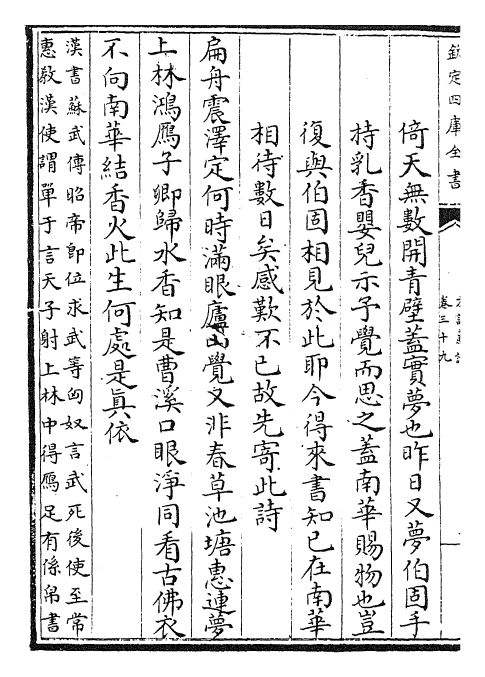 欽定四庫全書
卷三十九
倚天無數開青壁蓋實夢也昨日又夢伯固手
持乳香嬰兒示予覺而思之蓋南華賜物也豈
復與伯固相見於此耶今得來書知已在南華
相待數日矣感歎不已故先寄此詩
扁舟震澤定何時滿眼廬山覺又非春草池塘惠連夢
上林鴻鴈子卿歸水香知是曹溪口眼淨同看古佛衣
不向南華結香火此生何處是真依
漢書蘇武傳昭帝即位求武等匈奴言武死後使至常
惠敎漢使謂單于言天子射上林中得鴈足有係帛書